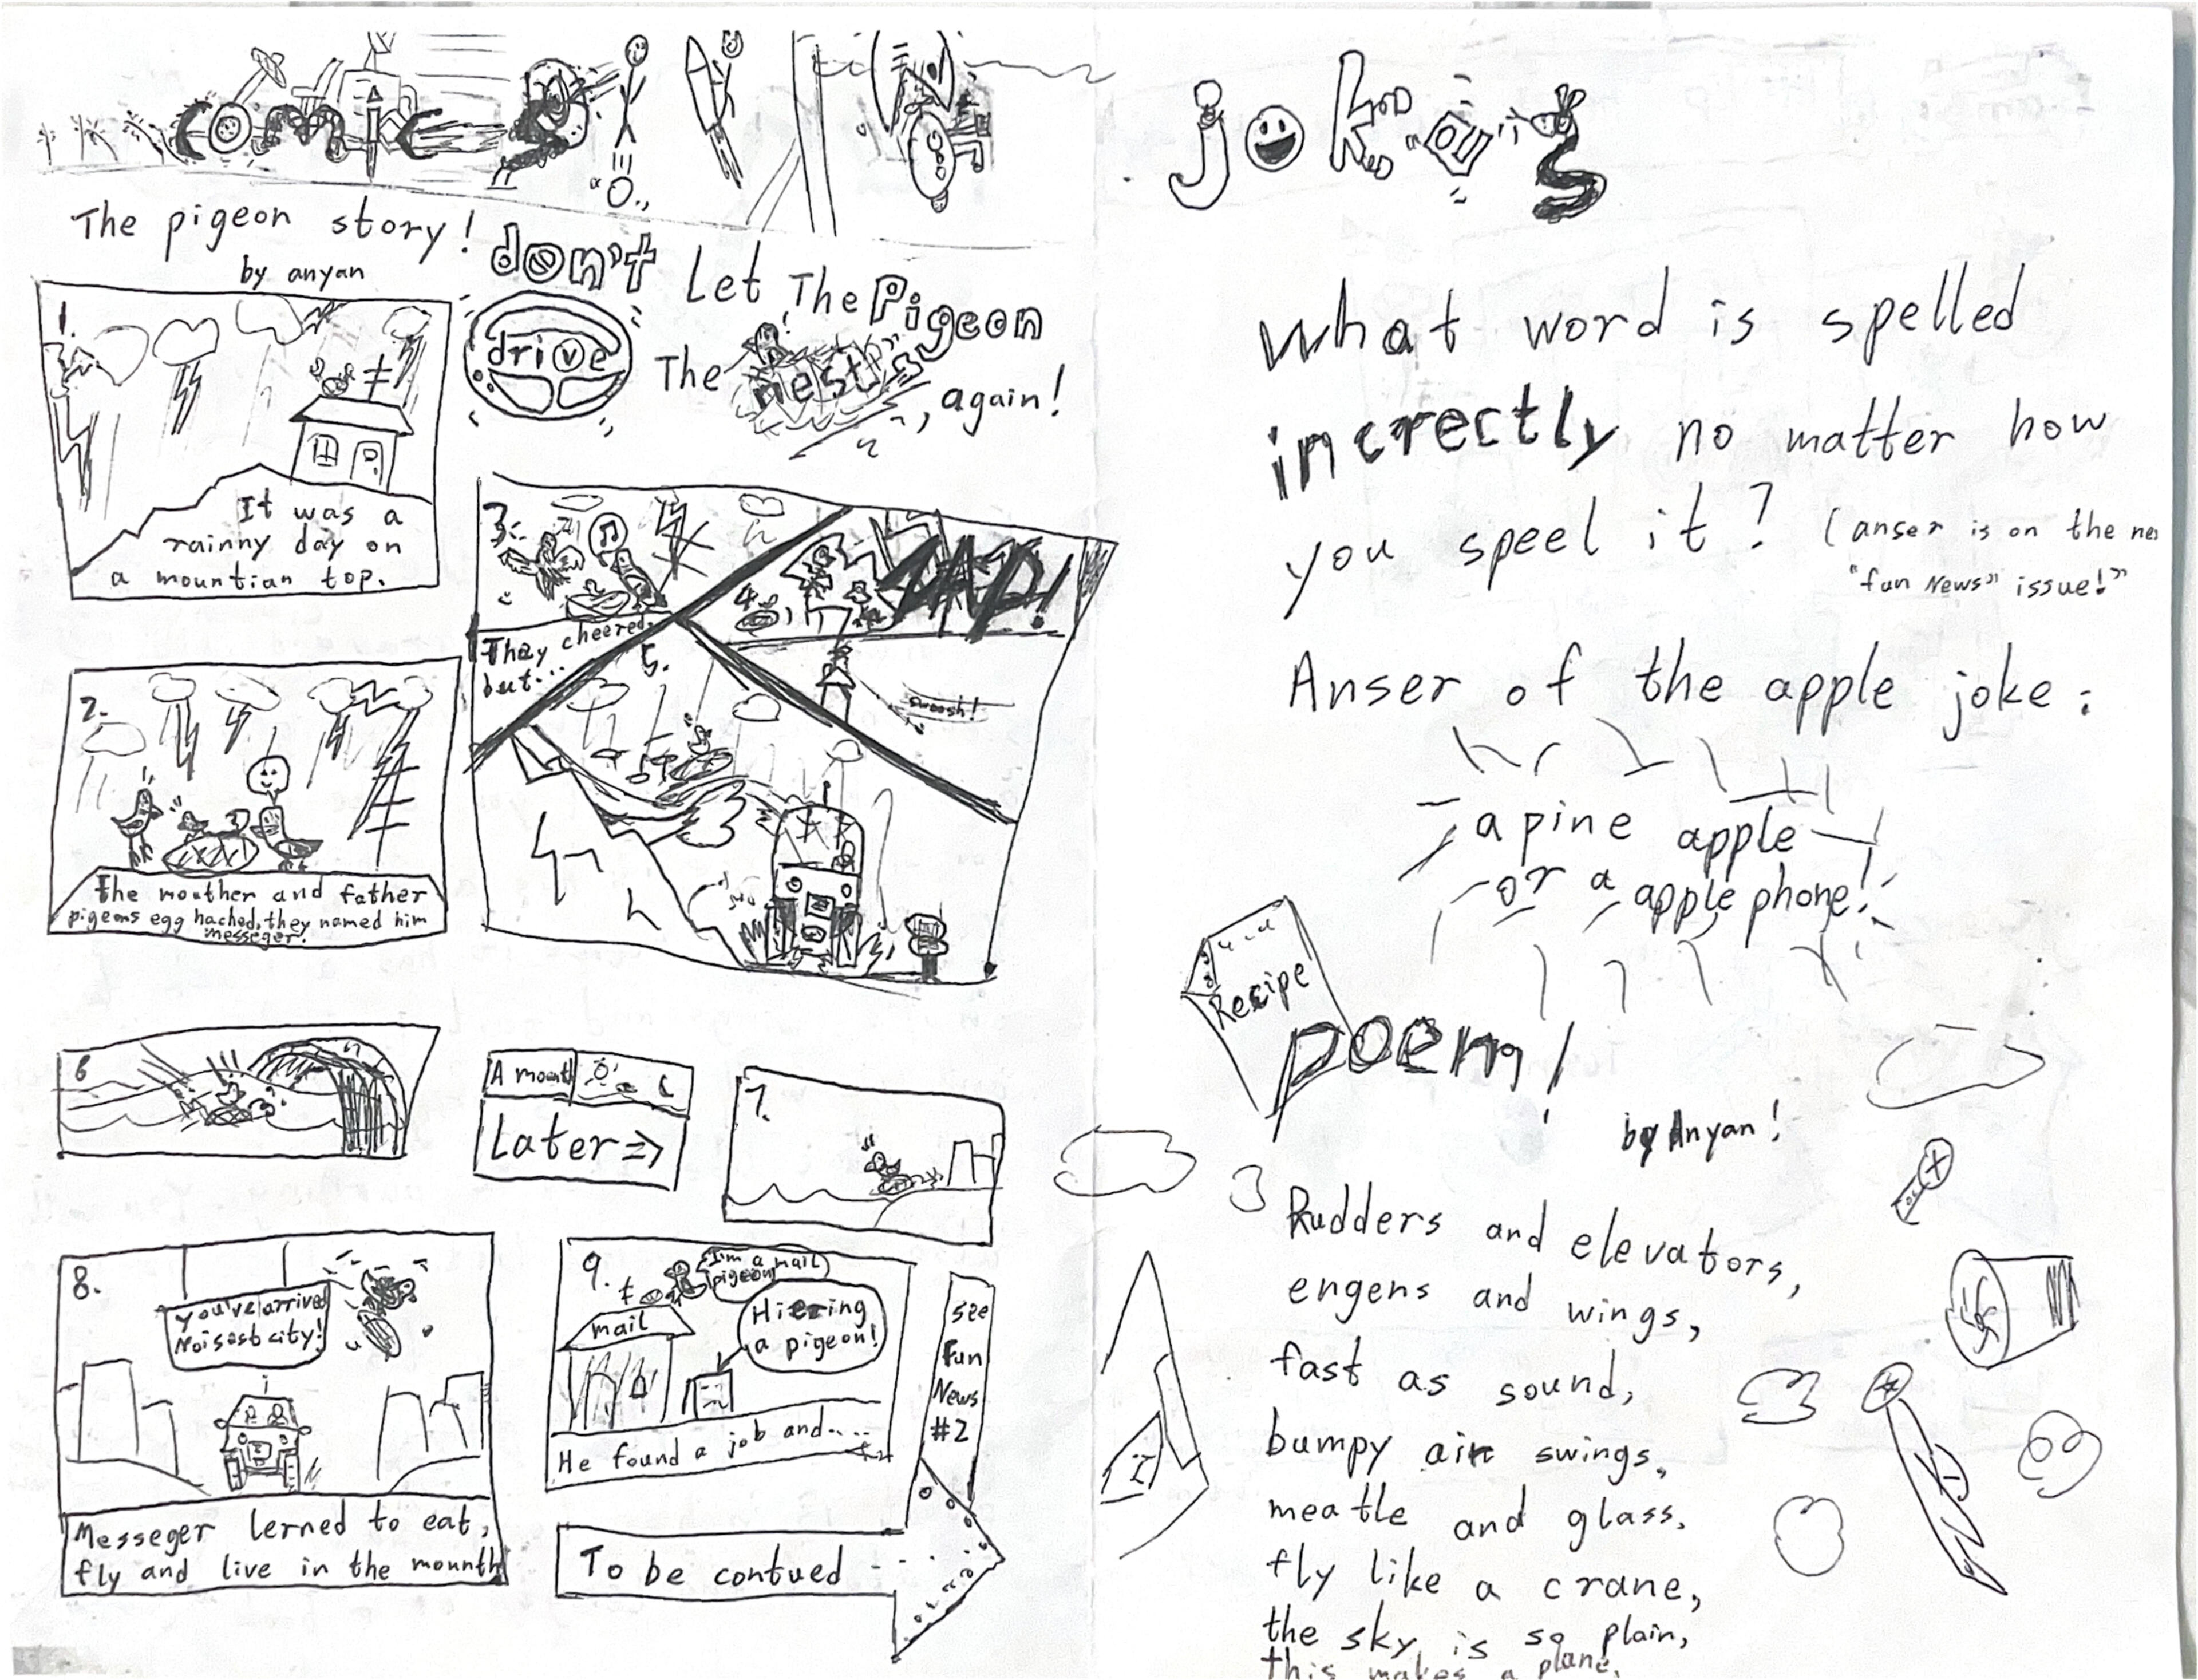 comic
The pigeon story!
by anyan
don't Let The Pigeon
drive The nest
, again!
1.
It was a
rainny day on
a mountian top.
2.
The mouther and father
pigeons egg hached, they named him
messeger.
3.
They cheered
but...
4.
ZAP!
5.
swoosh!
6
A mounth
Later
7.
8.
You've arrived
Noisest city!
Messeger lerned to eat,
fly and live in the mounth
9.
I'm a mail
pigeon!
mail
Hiering
a pigeon!
He found a job and....
see
Fun
News
#2
To be contued
jokes
What word is spelled
increctly no matter how
you speel it? (anser is on the ne
"fun News" issue!"
Anser of the apple joke:
a pine apple
or a apple phone!
Recipe
poem!
by Anyan!
Rudders and elevators,
engens and wings,
fast as sound,
bumpy air swings,
meatle and glass,
fly like a crane,
the sky is so plain,
this makes a plane.